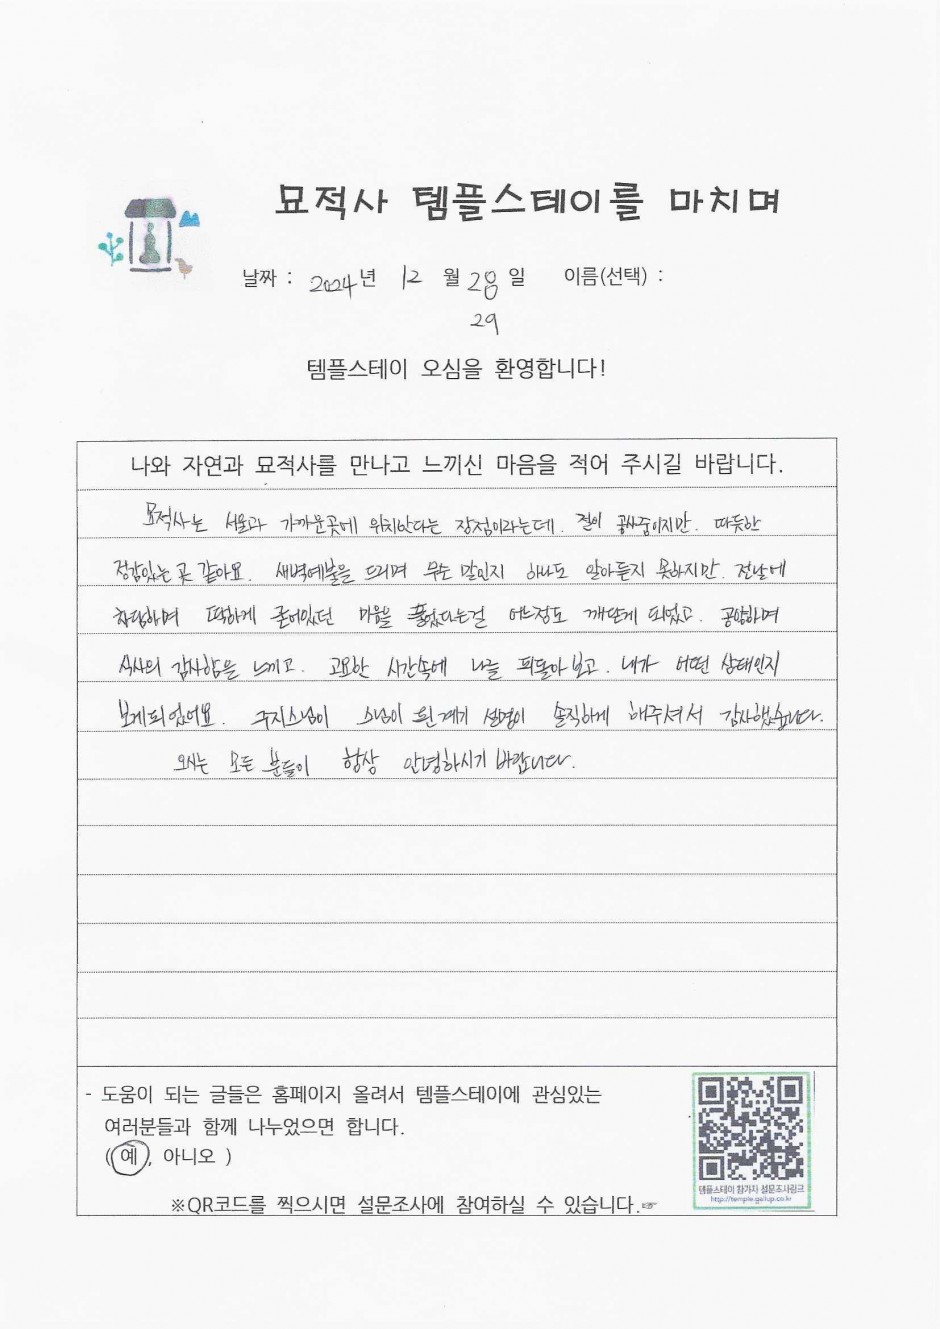 묘적사 템플스테이를 마치며
날짜 : 2024년 12 월 28 일 이름(선택) :
29
템플스테이 오심을 환영합니다!
나와 자연과 묘적사를 만나고 느끼신 마음을 적어 주시길 바랍니다.
묘적사는 서울과 가까운곳에 위치한다는 장점이라는데. 절이 공사중이지만. 따듯한
정감있는 곳 같아요. 새벽예불을 드리며 무슨 말인지 하나도 알아듣지 못하지만. 전날에
차담하며 딱하게 굳어있던 마음을 풀었다는걸 어느정도 깨닫게 되었고. 공양하며
식사의 감사함을 느끼고. 고요한 시간속에 나를 뒤돌아보고. 내가 어떤 상태인지
보게되었어요. 주지스님이 스님이 된계기 설명이 솔직하게 해주셔서 감사했습니다.
오시는 모든 분들이 항상 안녕하시기 바랍니다.
- 도움이 되는 글들은 홈페이지 올려서 템플스테이에 관심있는
여러분들과 함께 나누었으면 합니다.
(예, 아니오 )
템플스테이 참가자 설문조사링크
http://temple.gallup.co.kr
※QR코드를 찍으시면 설문조사에 참여하실 수 있습니다.☞